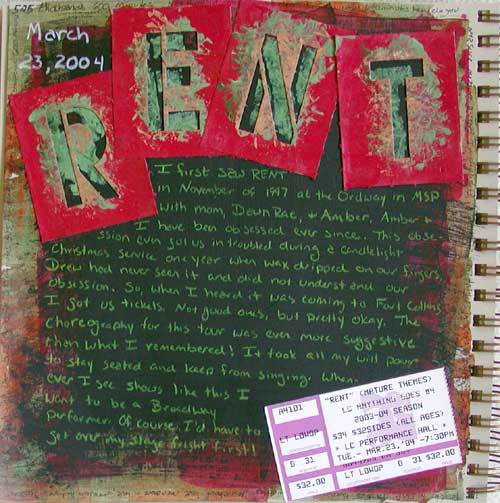 525 600 Minutes
March
23, 2004
RENT
I first saw RENT
in November of 1997 at the Ordway in MSP
with mom, DawnRae, + Amber. Amber +
I have been obsessed ever since. This obse-
ssion even got us in troubled during a candlelight
Christmas service one year when wax dripped on our fingers.
Drew had never seen it and did not understand our
obsession. So, when I heard it was coming to Fort Collins
I got us tickets. Not good ones, but pretty okay. The
choreography for this tour was even more suggestive
than what I remembered! It took all my will power
to stay seated and keep from singing. When-
ever I see shows like this I
want to be a Broadway
performer. Of course, I'd have to
get over my stage fright first!
A4101
LT LOWOP
D 31
$32.00
"RENT" (MATURE THEMES)
LC ANYTHING GOES #4
2003-04 SEASON
$34 $32SIDES (ALL AGES)
* LC PERFORMANCE HALL *
TUE.- MAR.23,'04 -7:30PM
LT LOWOP D 31 $32.00
$32.00